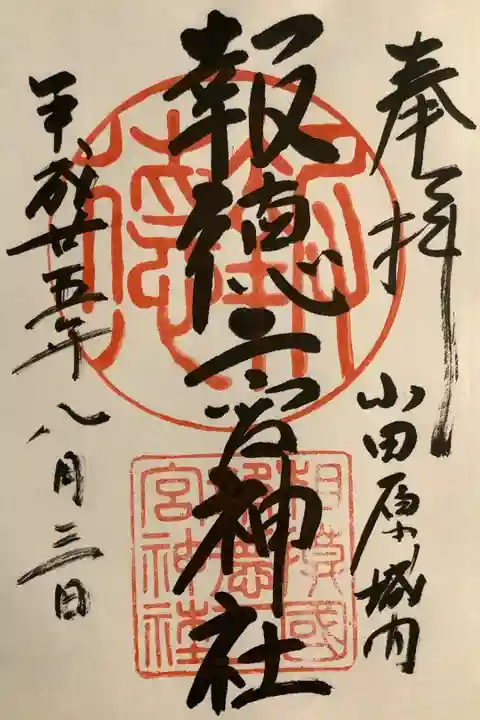 奉拝
小田原城内
報徳二宮神社
平成廿五年八月三日
相模國
報徳二
宮神社